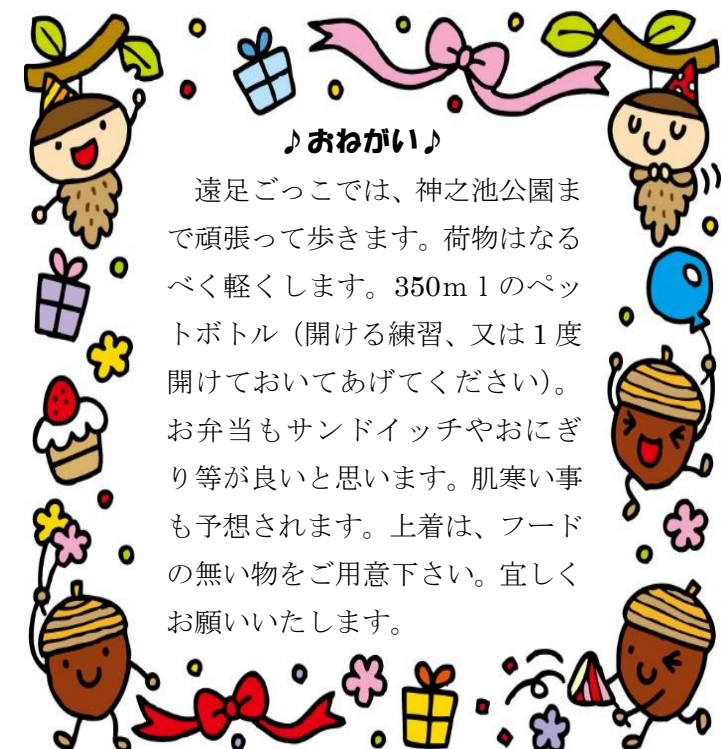 ♪おねがい♪
　遠足ごっこでは、神之池公園ま
で頑張って歩きます。荷物はなる
べく軽くします。350ｍｌのペッ
トボトル（開ける練習、又は１度
開けておいてあげてください）。
お弁当もサンドイッチやおにぎ
り等が良いと思います。肌寒い事
も予想されます。上着は、フード
の無い物をご用意下さい。宜しく
お願いいたします。